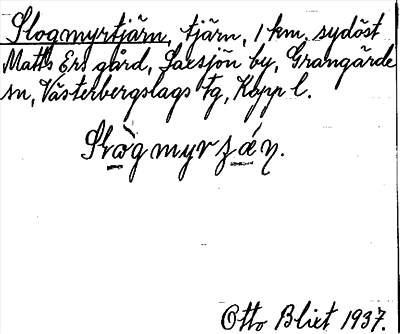 Slogmyrtjärn, tjärn, 1 km. sydöst
Matts Ers gård, Saesjön by, Grangärde
sn, Västerbergslags tg, Kopp l.
Slògmyrʒǽn.
Otto Blixt 1937.